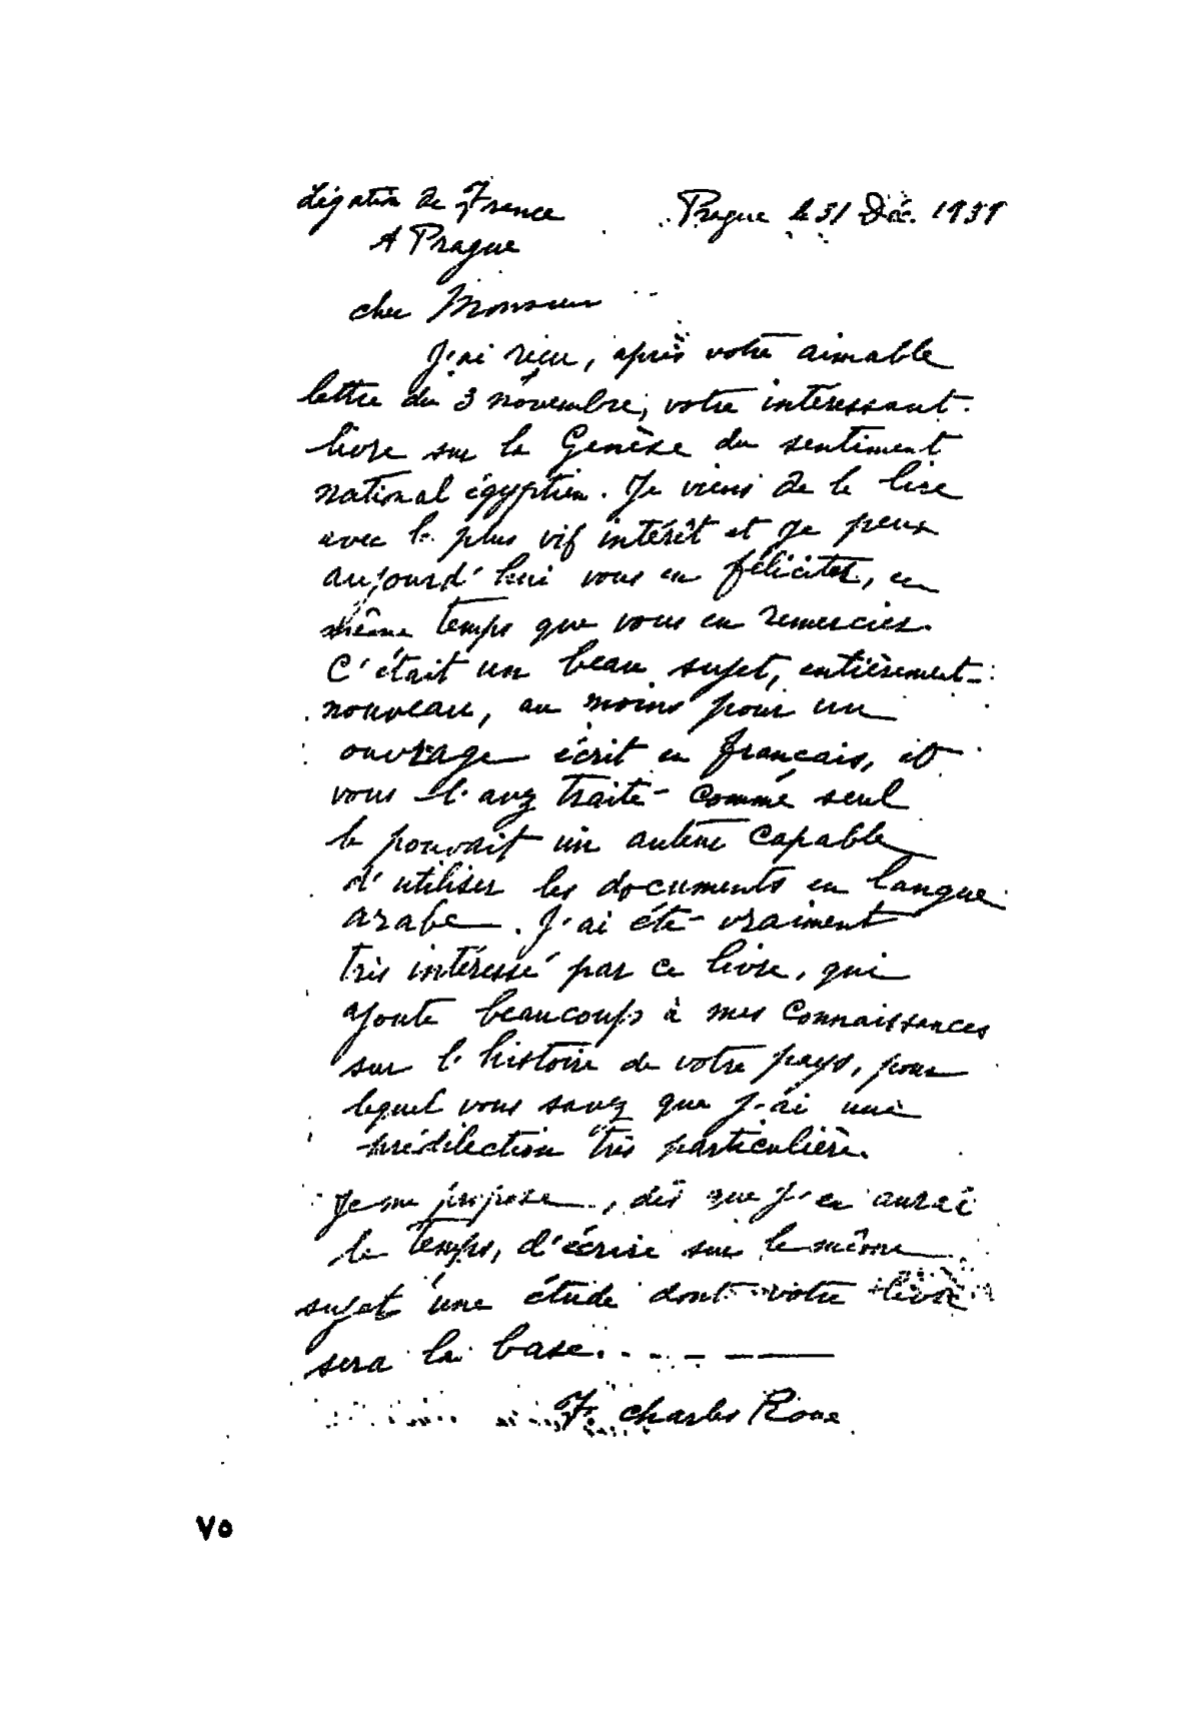 Légation de France
A Prague
Prague le 31 Déc. 1939
cher Monsieur
J'ai reçu, après votre aimable
lettre du 3 novembre, votre intéressant
livre sur la Genèse du sentiment
national égyptien. Je viens de le lire
avec le plus vif intérêt et je peux
aujourd'hui vous en féliciter, en
même temps que vous en remercier.
C'était un beau sujet, entièrement
nouveau, au moins pour un
ouvrage écrit en français, et
vous l'avez traité comme seul
le pouvait un auteur capable
d'utiliser les documents en langue
arabe. J'ai été vraiment
très intéressé par ce livre, qui
ajoute beaucoup à mes connaissances
sur l'histoire de votre pays, pour
lequel vous savez que j'ai une
prédilection très particulière.
Je me propose, dès que j'en aurai
le temps, d'écrire sur le même
sujet une étude dont votre livre
sera la base.
F. charles Roux
٧٥